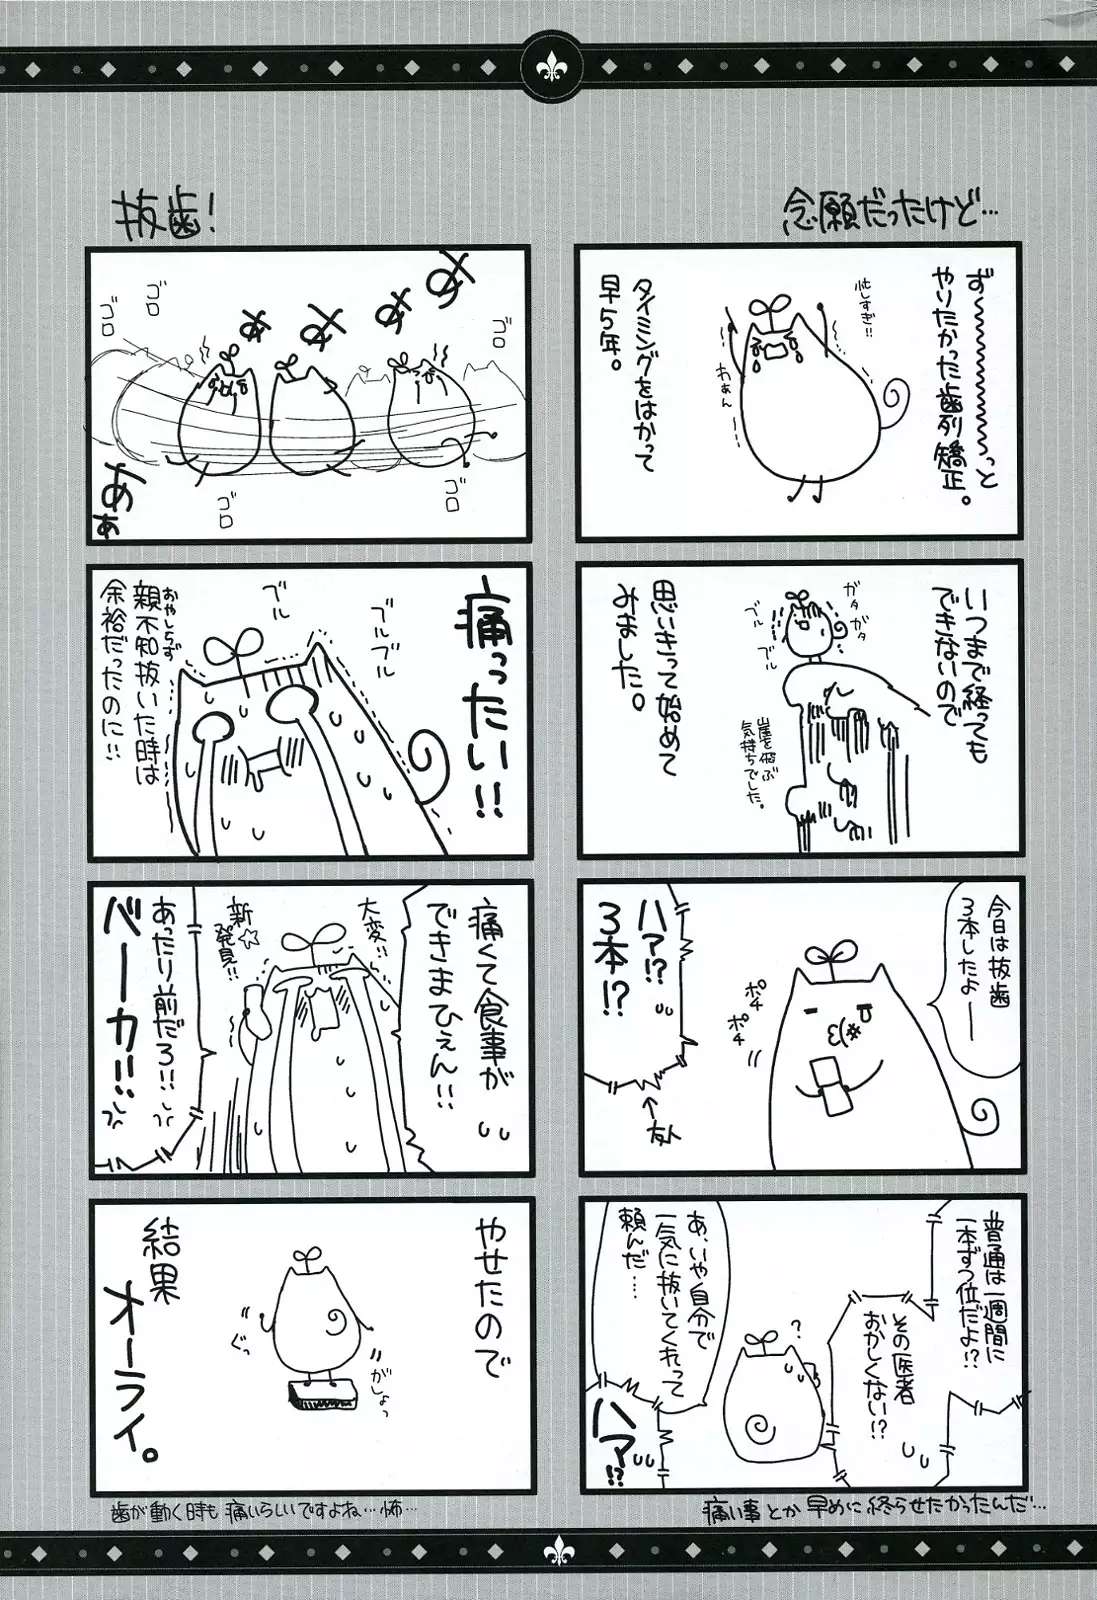 念願だったけど…
ず～～～～～っと
やりたかった歯列矯正。
忙しすぎ!!
わぁん
タイミングをはかって
早5年。
いつまで経っても
できないので
ガタガタ
ブル
ブル
崖を飛ぶ
気持ちでした。
思いきって始めて
みました。
今日は抜歯
3本したよー
ポチ
ポチ
ハァ!?
3本!?
←友人
普通は一週間に
一本ずつ位だよ!?
その医者
おかしくない!?
?
あ、いや自分で
一気に抜いてくれって
頼んだ……
ハァ!?
痛い事とか早めに終らせたかったんだ…
抜歯!
ああああ
ああ
ゴロ
ゴロ
ゴロ
ゴロ
ゴロ
痛ったい!!
ブルブル
ブル
親不知抜いた時は
おやしらず
余裕だったのに!!
痛くて食事が
できまひぇん!!
大変!!
新☆
発見!!
あったり前だろ!!
バーカ!!
やせたので
がしょっ
ぐっ
結果
オーライ。
歯が動く時も痛いらしいですよね…怖…